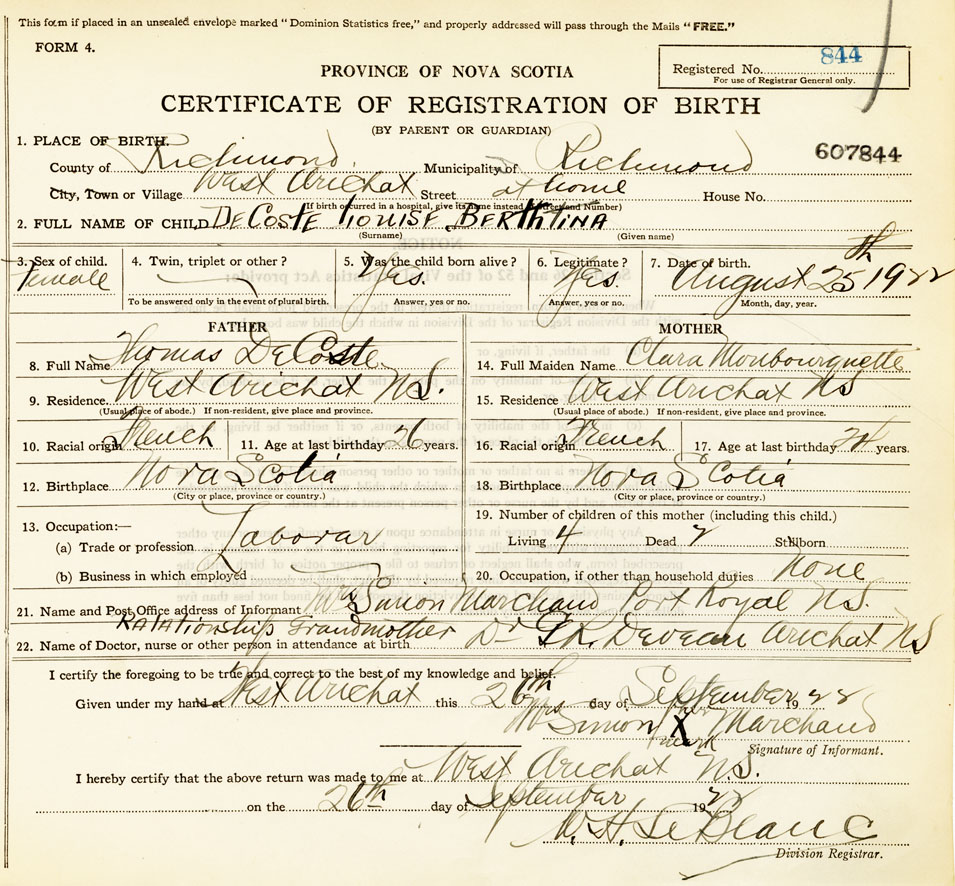 This form if placed in an unsealed envelope marked "Dominion Statistics free," and properly addressed will pass through the Mails "FREE."
FORM 4.
844
Registered No.
For use of Registrar General only.
PROVINCE OF NOVA SCOTIA
CERTIFICATE OF REGISTRATION OF BIRTH
(BY PARENT OR GUARDIAN)
1. PLACE OF BIRTH.
607844
County of Richmond Municipality of Richmond
City, Town or Village West Arichat Street at home House No.
(If birth occurred in a hospital, give its name instead of Street and Number)
2. FULL NAME OF CHILD DeCoste Louise Berthtina
(Surname) (Given name)
3. Sex of child. 4. Twin, triplet or other? 5. Was the child born alive? 6. Legitimate? 7. Date of birth.
Female Yes. Yes. August 25th 1922
To be answered only in the event of plural birth. Answer, yes or no. Answer, yes or no. Month, day, year.
FATHER MOTHER
8. Full Name Thomas DeCoste 14. Full Maiden Name Clara Monbourquette
9. Residence West Arichat N.S. 15. Residence West Arichat NS
(Usual place of abode.) If non-resident, give place and province. (Usual place of abode.) If non-resident, give place and province.
10. Racial origin French 11. Age at last birthday 26 years. 16. Racial origin French 17. Age at last birthday years.
12. Birthplace Nova Scotia 18. Birthplace Nova Scotia
(City or place, province or country.) (City or place, province or country.)
13. Occupation:— 19. Number of children of this mother (including this child.)
(a) Trade or profession Laborar Living 4 Dead Stillborn
(b) Business in which employed 20. Occupation, if other than household duties None
21. Name and Post Office address of Informant Mrs Simon Marchand Port Royal N.S.
Ralationship Grandmother
22. Name of Doctor, nurse or other person in attendance at birth Dr Deveau Arichat NS
I certify the foregoing to be true and correct to the best of my knowledge and belief.
Given under my hand at West Arichat this 26th day of September 19
Mrs Simon her X mark Marchand
Signature of Informant.
I hereby certify that the above return was made to me at West Arichat N.S.
on the 26th day of September 1922
LeBlanc
Division Registrar.